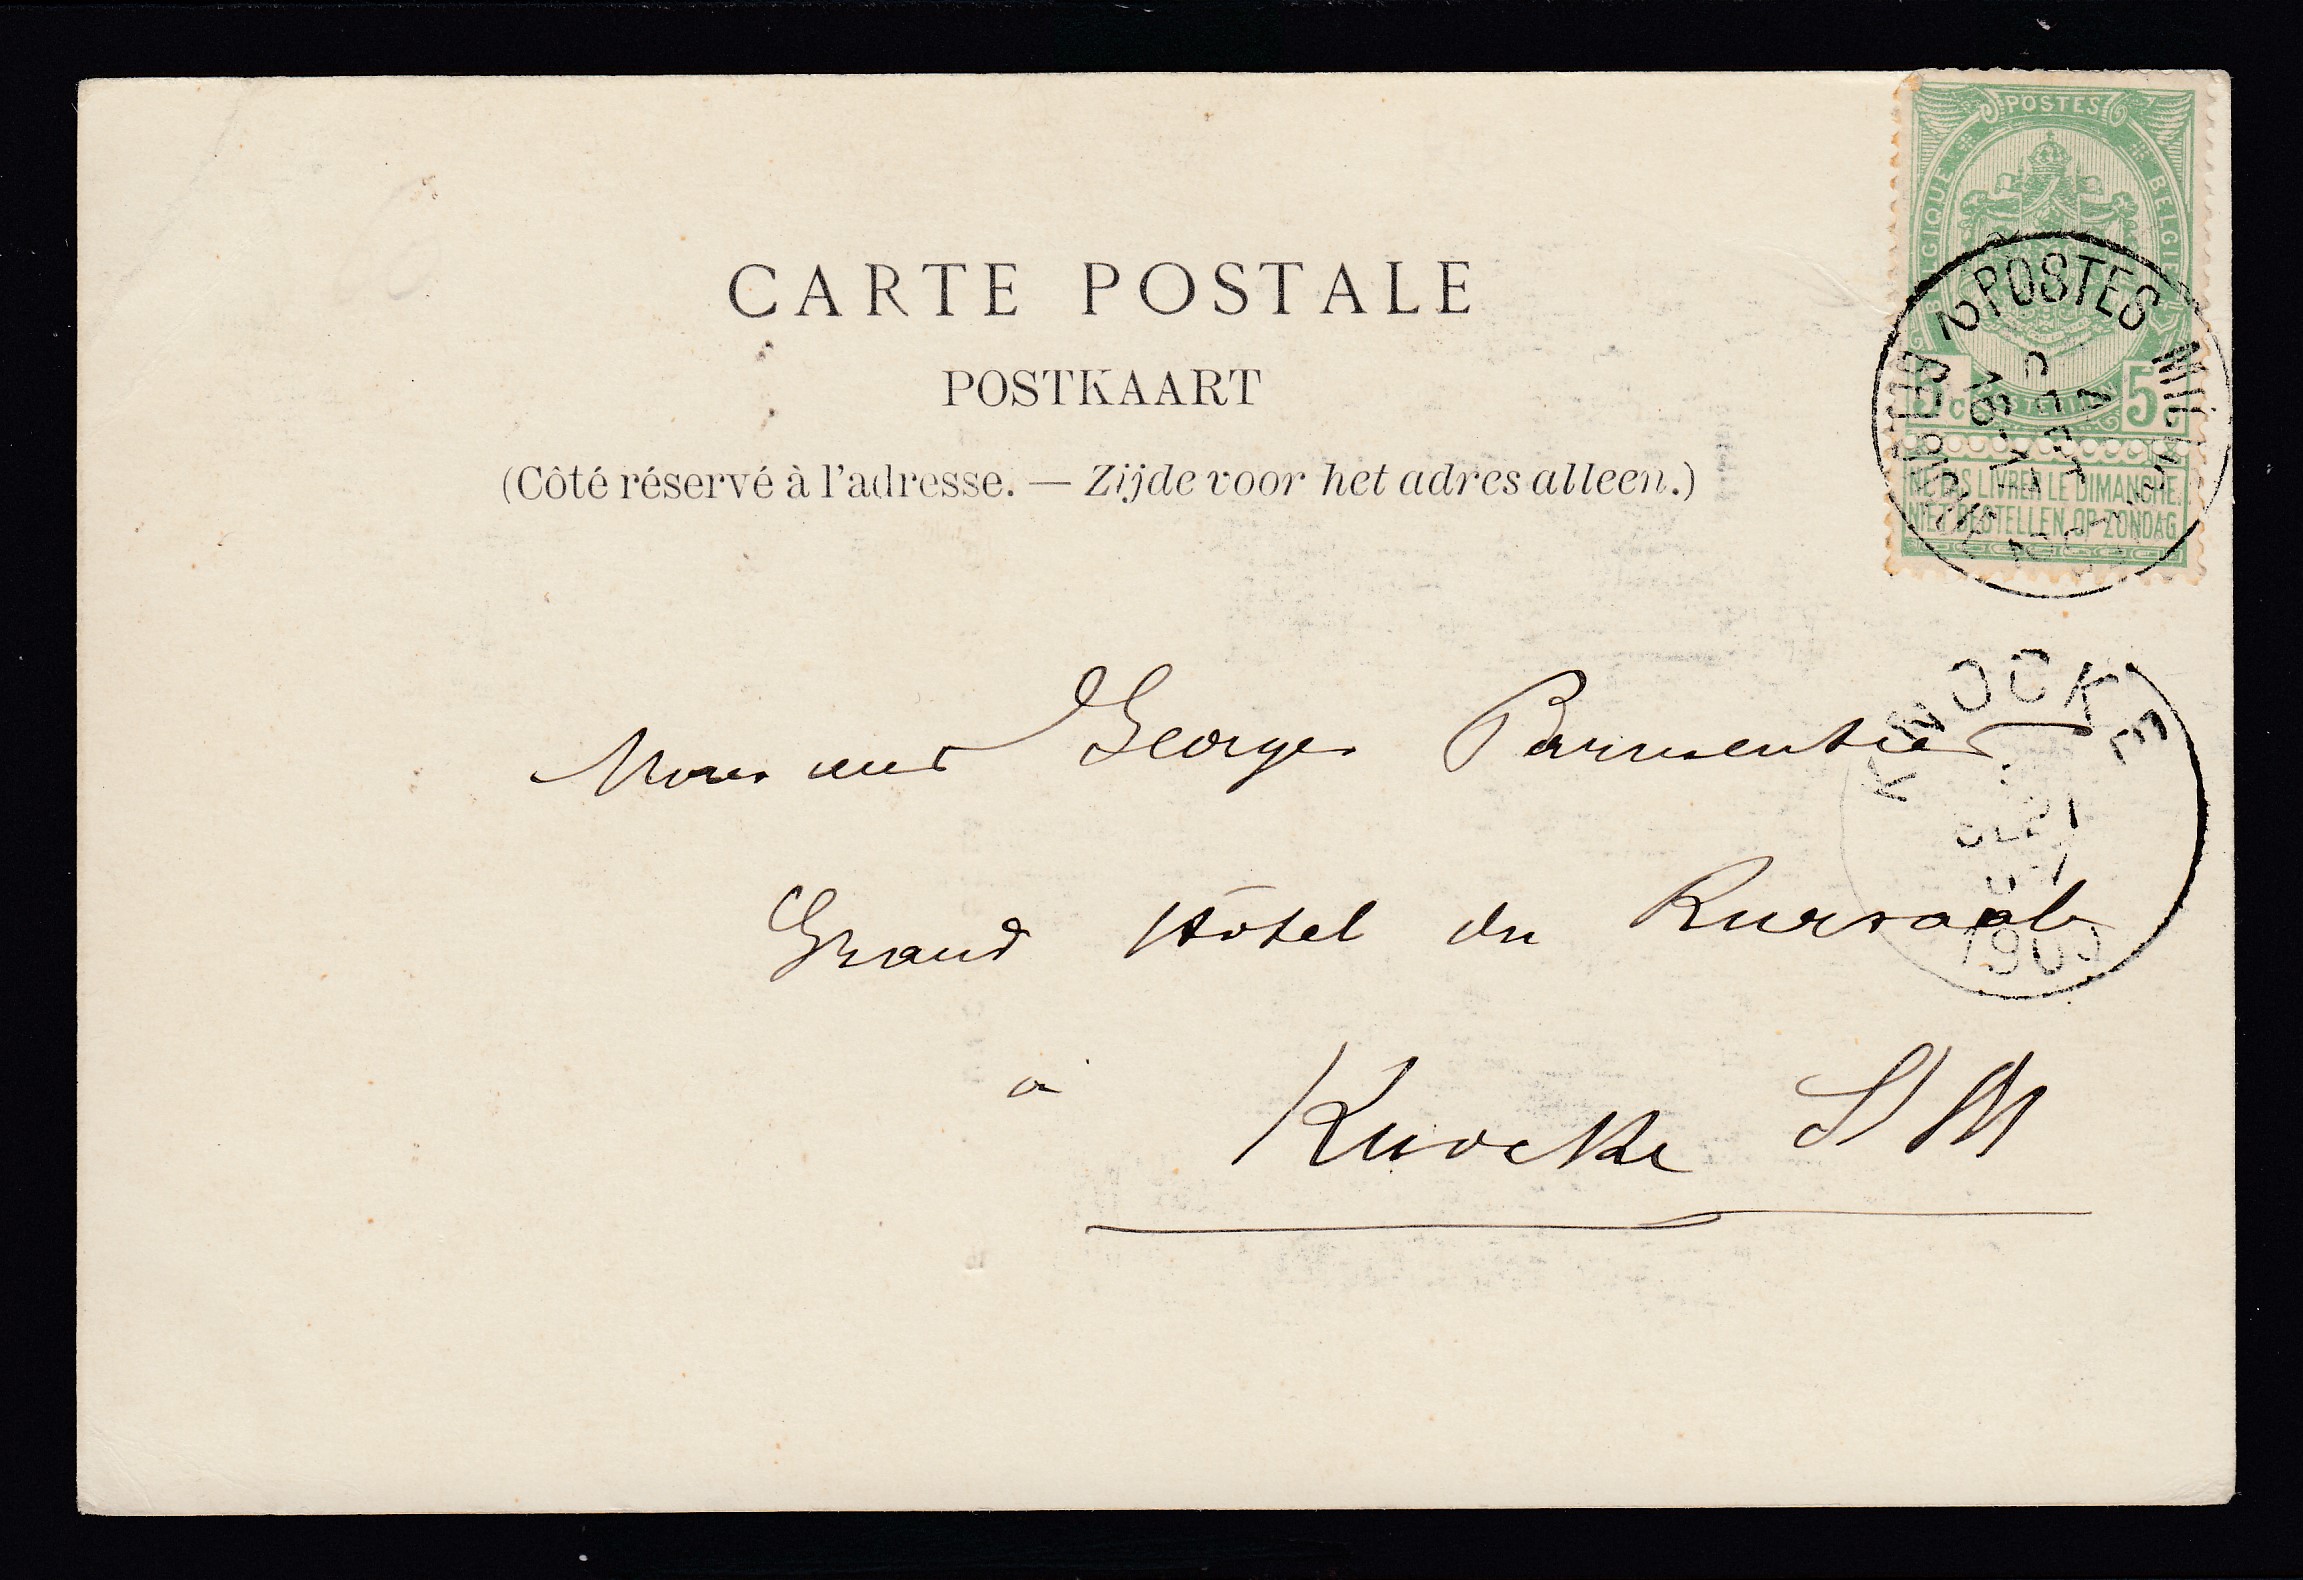 CARTE POSTALE
POSTKAART
(Côté réservé à l'adresse. — Zijde voor het adres alleen.)
POSTES
BELGIQUE BELGIE
5 CENTIEMEN 5
NE PAS LIVRER LE DIMANCHE.
NIET BESTELLEN OP ZONDAG
POSTES MILITAIRES
BELGIQUE
2
SEPT
KNOCKE
SEPT
190
Monsieur Georges Parmentier
Grand Hôtel du Kursaal
à
Knocke S/M